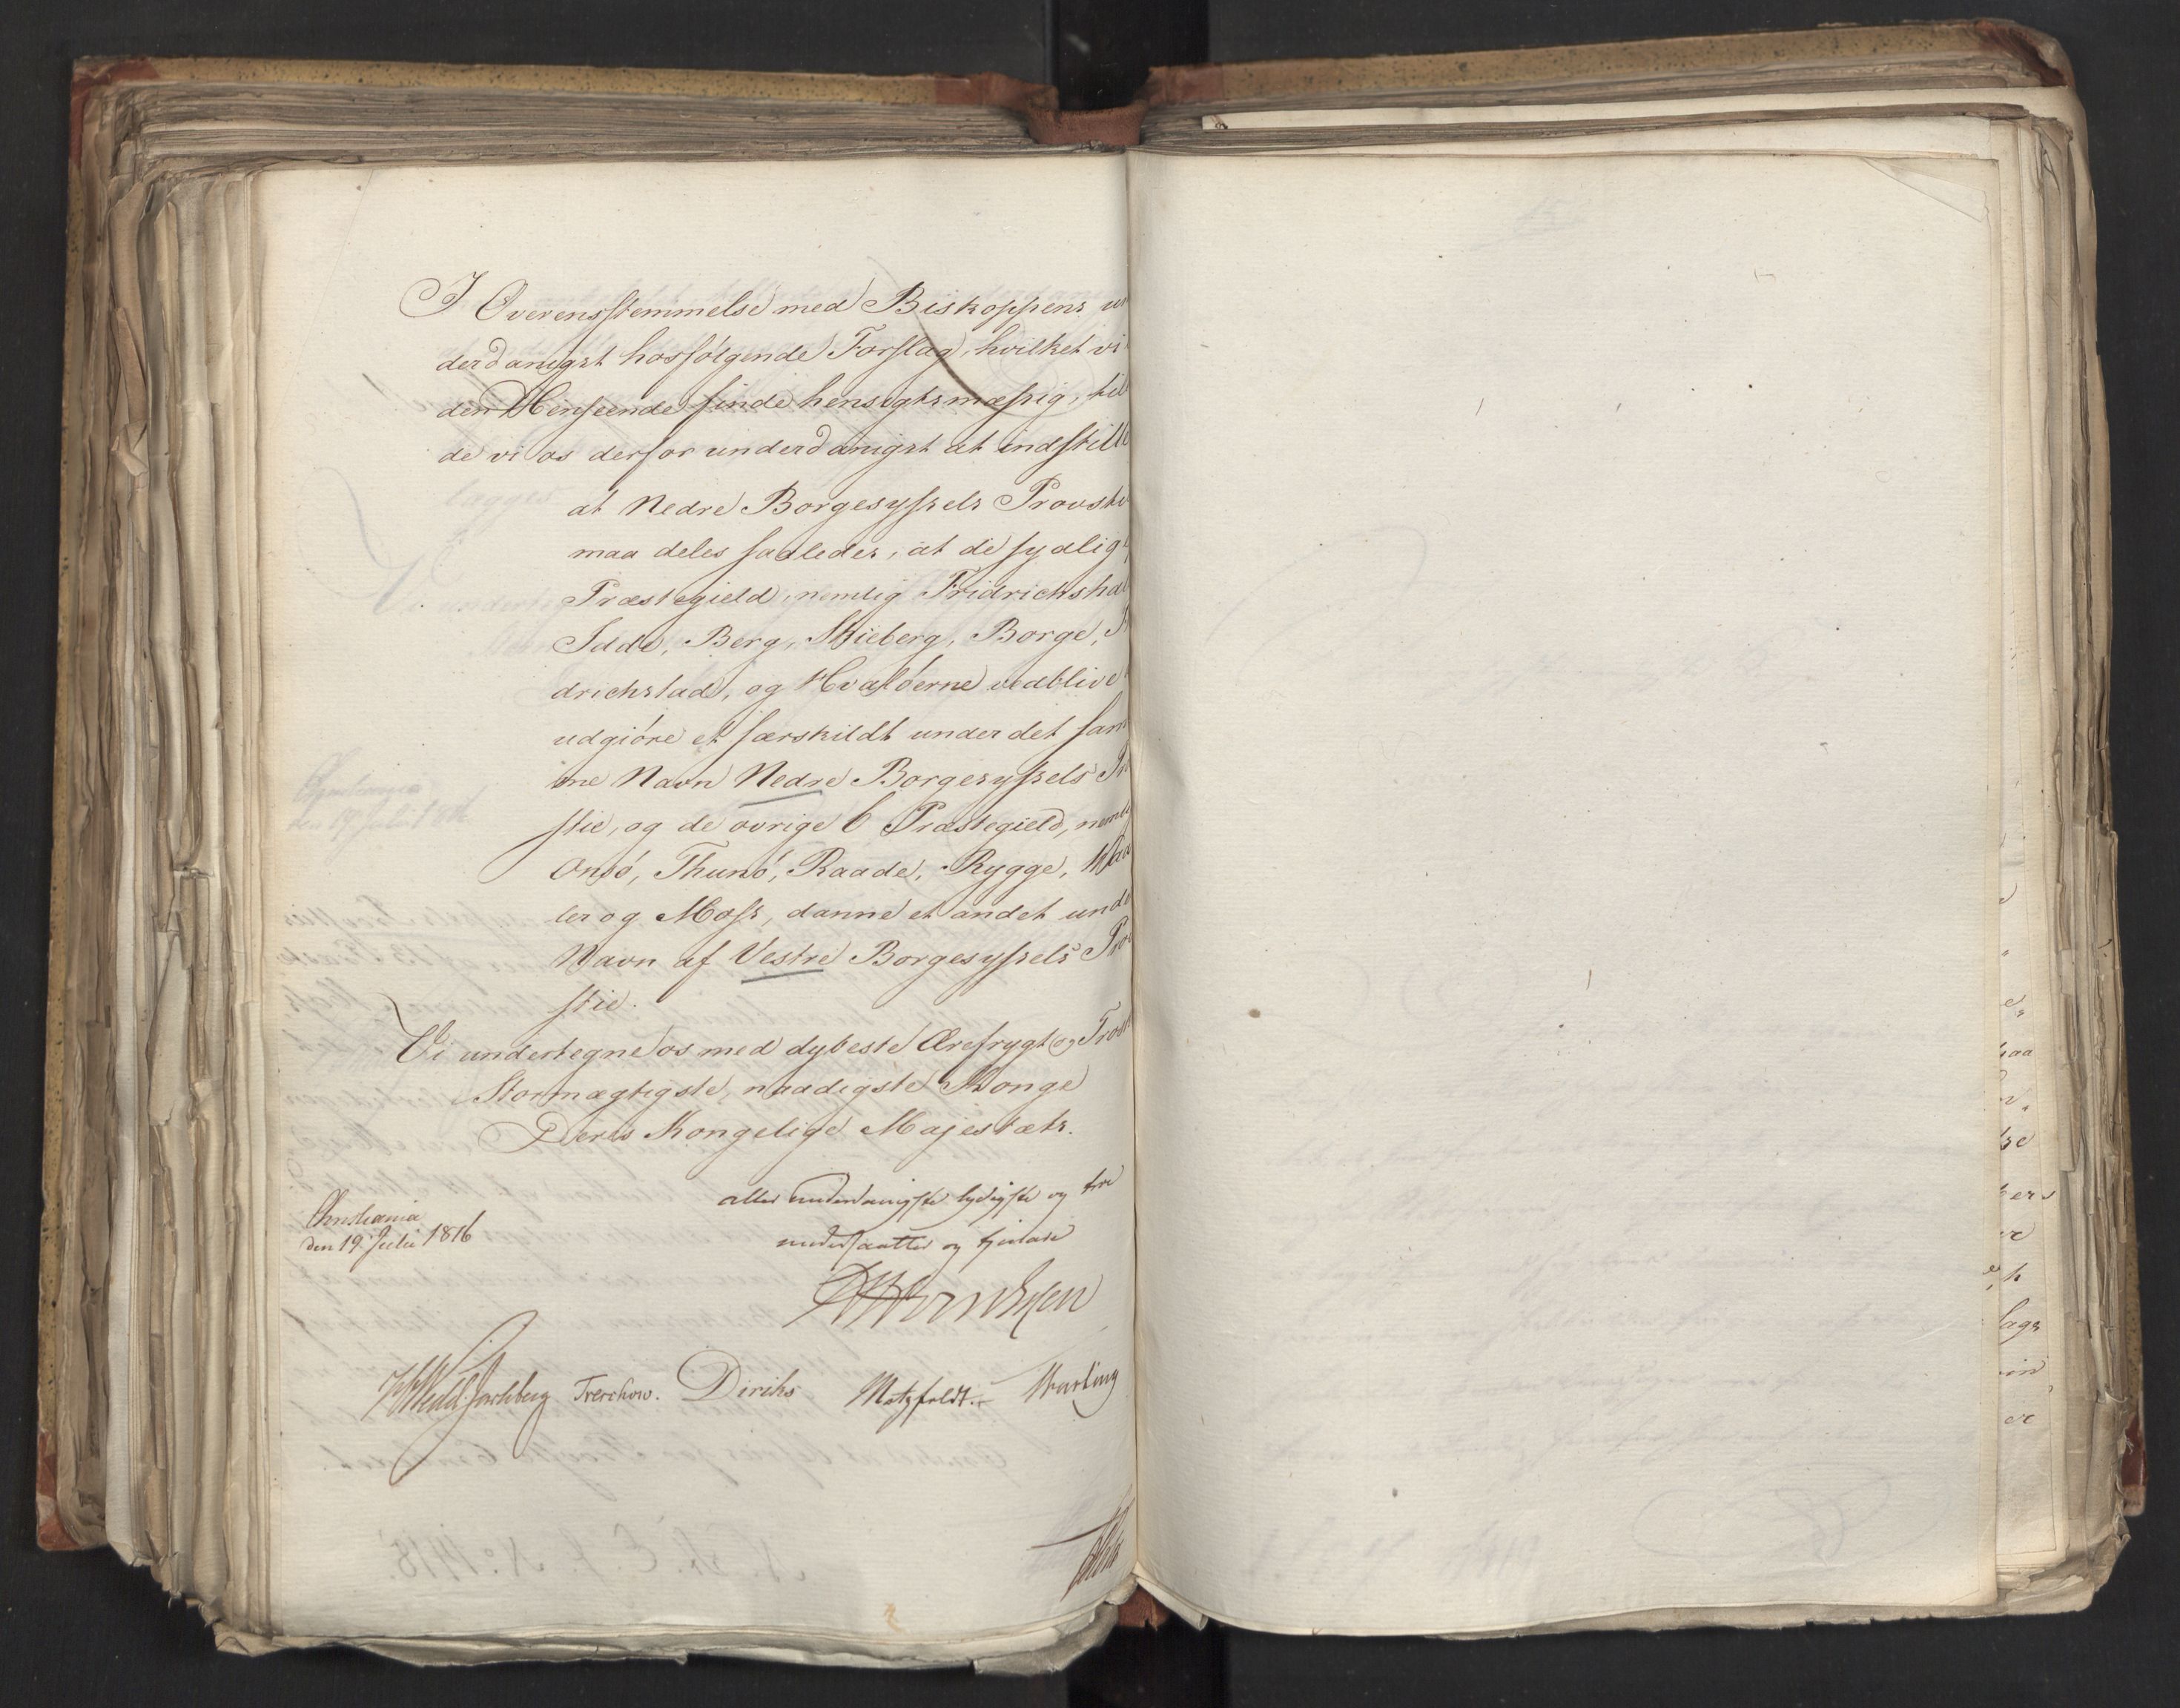 I Overensstemmelse med Biskoppens un
derdanigst hosfølgende Forslag, hvilket vi
den Henseende finde hensigtsmæssig, til
de vi os derfor underdanigst at indstille
at Nedre Borgesyssels Provsti
maa deles saaledes, at de sydlige
Præstegield, nemlig Fridrichshal
Idde, Berg, Skieberg, Borge, Fri
drichstad, og Hvaløerne vedblive
udgiøre et særskildt under det sam
me Navn Nedre Borgesyssels Pro
stie, og de øvrige 6 Præstegield, nemlig
Onsø, Thunø, Raade, Rygge, Waa
ler og Moss, danne et andet under
Navn af Vestre Borgesyssels Pro
stie.
Vi undertegne os med dybeste Ærefrygt og Trosk
Stormægtigste, naadigste Konge
Deres Kongelige Majestæts.
aller underdanigste lydigste og troe
undersaatter og tjenere
Christiania
den 19 Julii 1816
Wedel Jarlsberg Treschow. Diriks Motzfeldt.